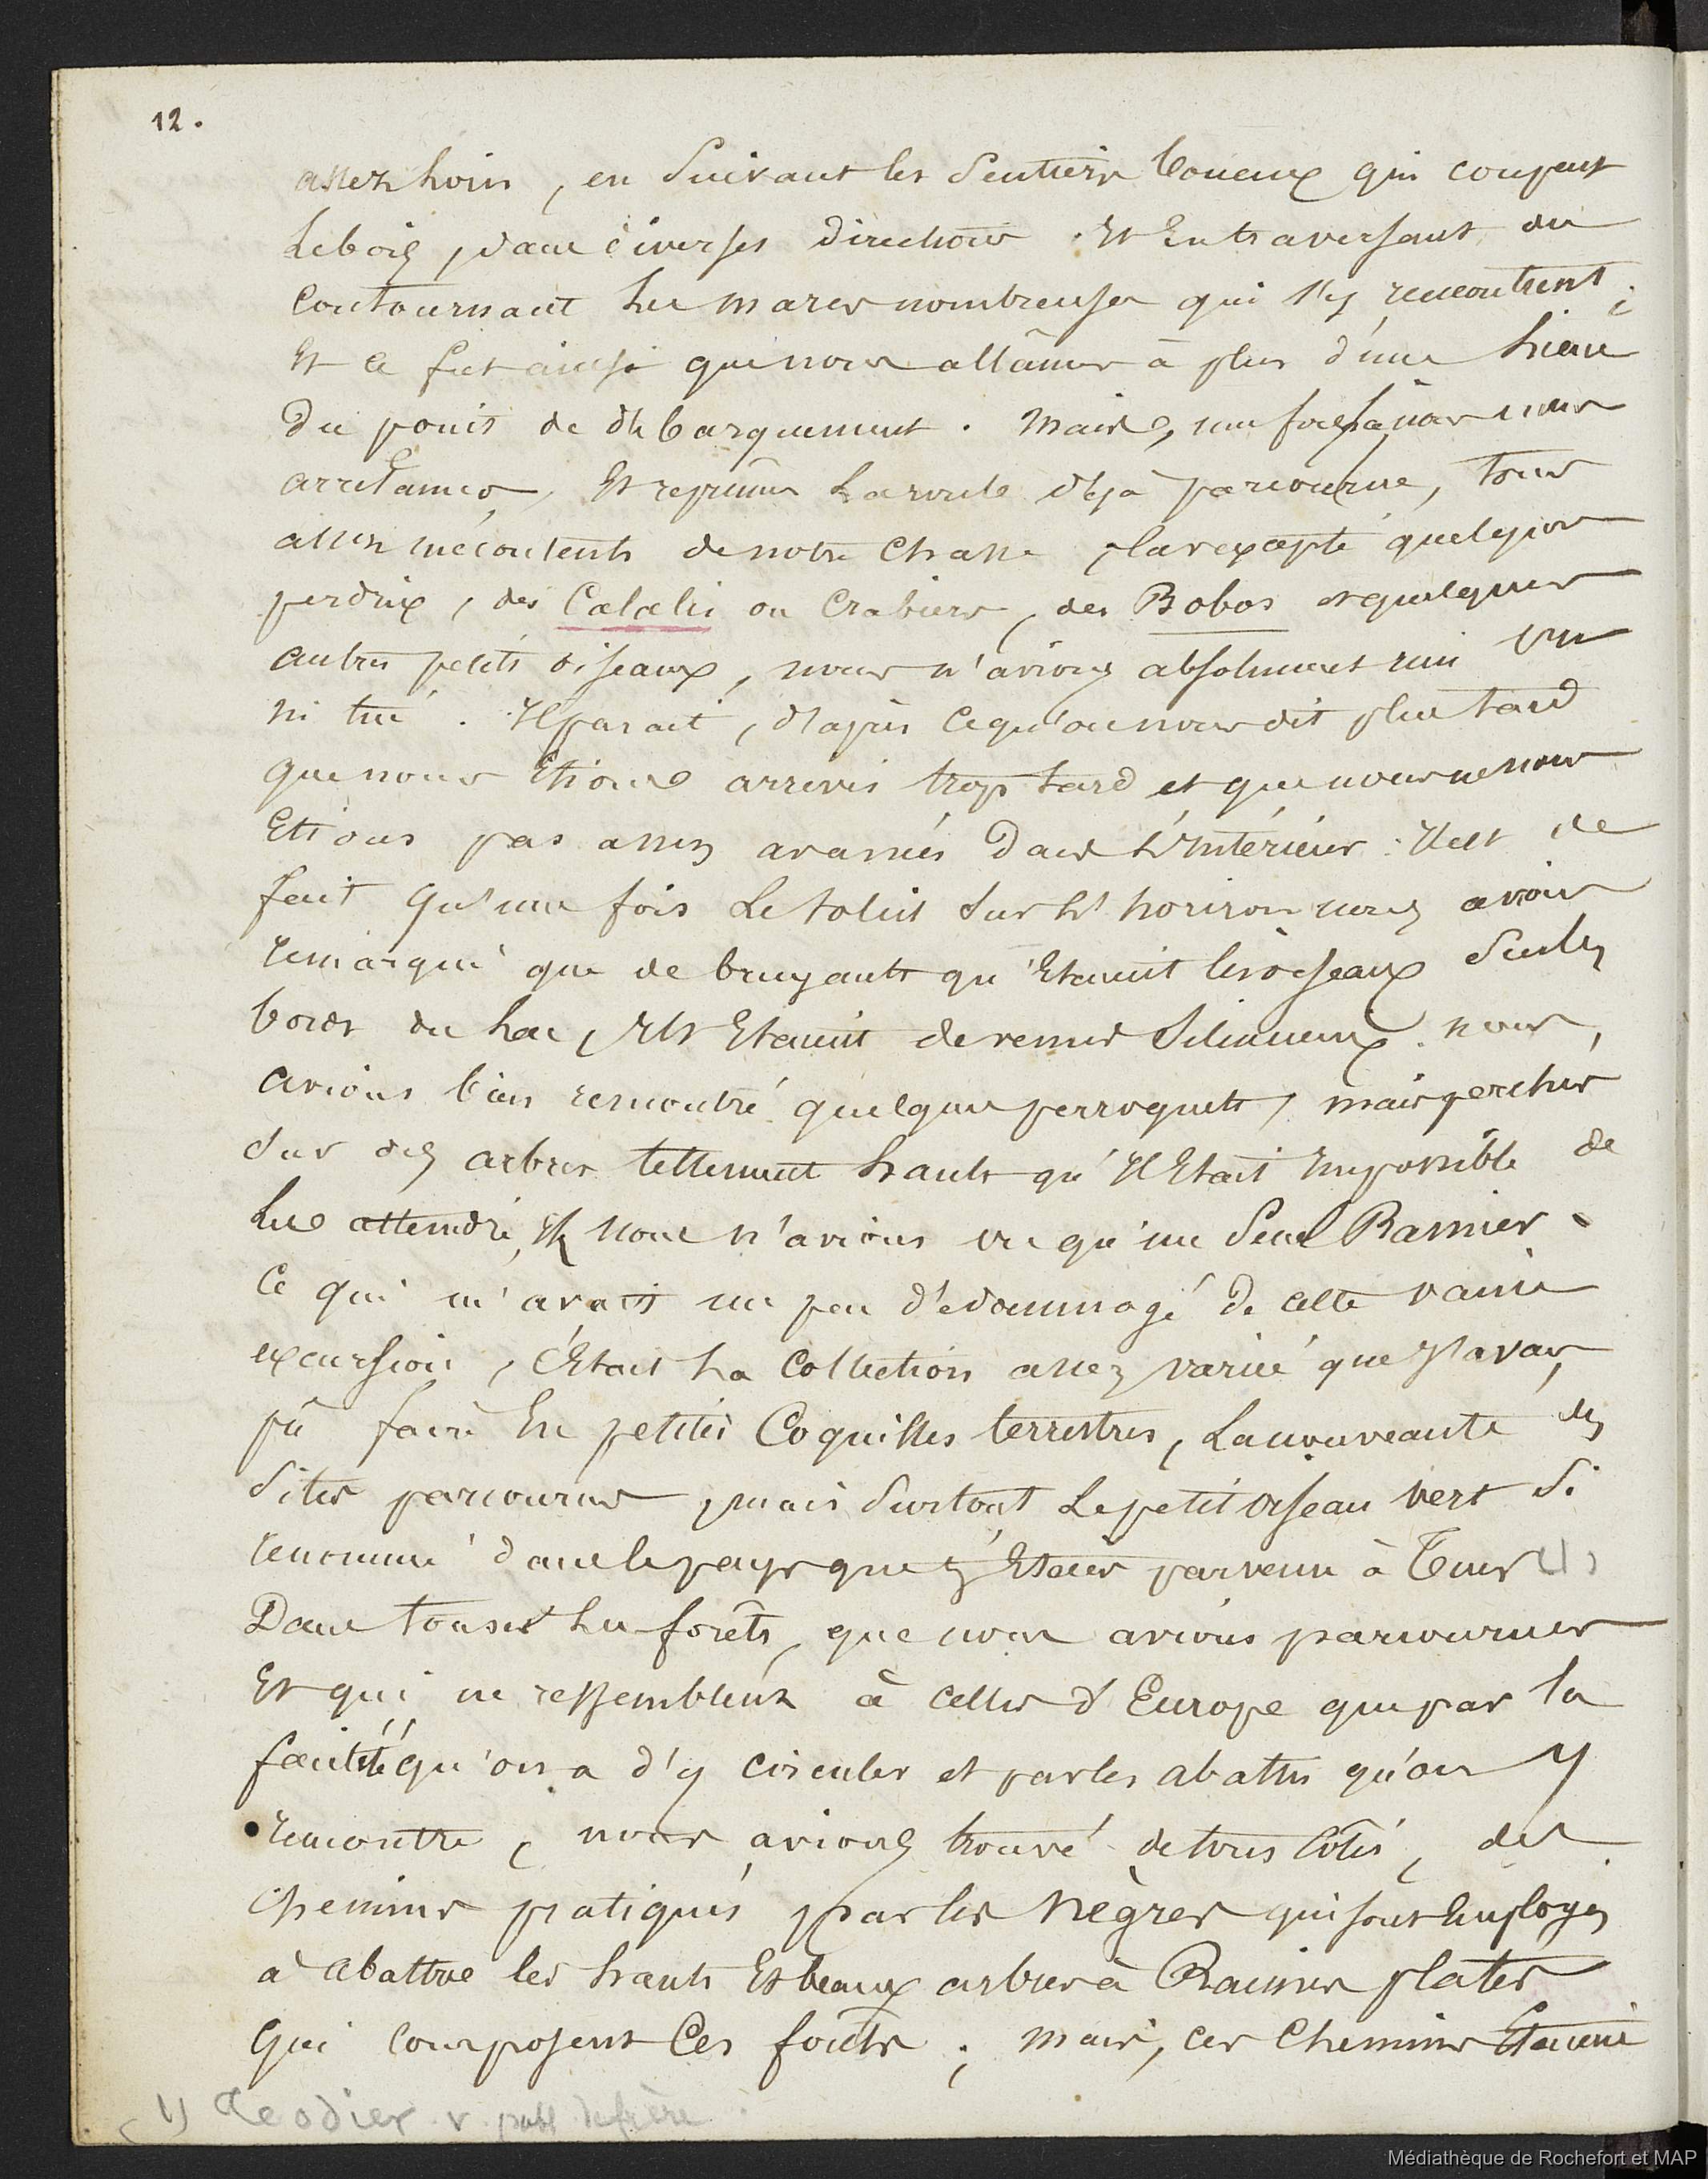 12.
assez loin, en suivant les sentiers boueux qui coupent
le bois, dans diverses directions. Et En traversant ou
contournant Les mares nombreuses qui s'y rencontrent;
Et ce fut ainsi que nous allâmes à plus d'une Lieue
Du point de débarquement. Mais, une fois là, nous nous
arretames, Et reprimes La route déjà parcourue, tous
assez mécontents de notre Chasse, car excepté quelques
perdrix, des Calalis ou Crabiers, des Bobos et quelques
autres petits oiseaux, nous n'avions absolument rien vu
ni tué. Il parait, d'après ce qu'on nous dit plus tard
que nous Etions arrivés trop tard et que nous ne nous
Etions pas assez avancés Dans L'Intérieur. Il est de
fait qu'une fois Le soleil sur L'horizon nous avions
remarqué que de bruyants qu'Etaient les oiseaux sur les
bords du Lac, Ils Etaient devenus silencieux. nous,
avions bien rencontré quelques perroquets, mais perchés
sur des arbres tellement hauts qu'Il Etait Impossible de
Les atteindre, Et nous n'avions vu qu'un seul Ramier.
Ce qui m'avait un peu dédommagé de cette vaine
excursion, c'Etait La Collection assez variée que J'avais
pû faire En petites Coquilles terrestres, La nouveauté des
sites parcourus, mais surtout Le petit oiseau vert si
renommé dans le pays que j'Etais parvenu à Tuer (1)
Dans toutes Les forêts, que nous avions parcourues
Et qui ne ressemblent à celles d'Europe que par la
facilité qu'on a d'y circuler et par les abattis qu'on y
rencontre, nous avions trouvé de tous côtés, des
chemins pratiqués par les Nègres qui sont Employés
à abattre les hauts Et beaux arbres à Racines plates
Qui composent Ces forêts; mais, ces Chemins Etaient
(1) Le odier v. publ. de frère
Médiathèque de Rochefort et MAP